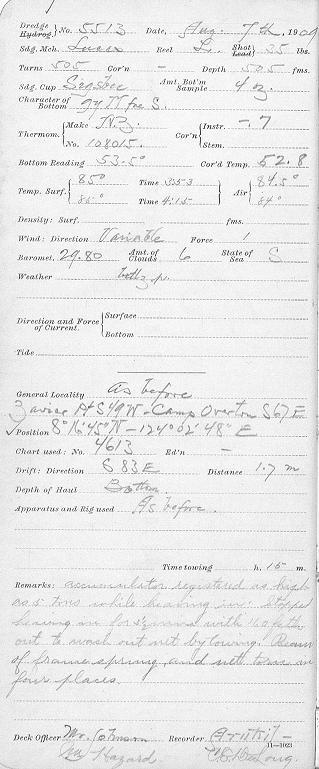 Dredge
Hydrog. } No. 5513 Date, Aug. 7th, 1909
Sdg. Mch. Lucas Reel L. Shot Lead 35 lbs.
Turns 505 Cor'n - Depth 505 fms.
Sdg. Cup Amt. Bot'm Sample 4 oz.
Character of Bottom gy M fne S.
Thermom. { Make N.Z. Cor'n { Instr. -.7
No. 108015. Stem.
Bottom Reading 53.5° Cor'd Temp. 52.8
Temp. Surf. { 85° Time 3:53 } Air { 84.5°
85° Time 4:15 84°
Density: Surf. fms.
Wind: Direction Variable Force 1
Baromet. 29.80 Amt. of Clouds 6 State of Sea S
Weather
Direction and Force of Current. { Surface
Bottom
Tide
General Locality as before
S 49 W - Camp Overton S 67 E
Position 8° 16' 45" N - 124° 02' 48" E
Chart used: No. 4613 Ed'n -
Drift: Direction S 83 E Distance 1.7 m
Depth of Haul Bottom
Apparatus and Rig used As before.
Time towing h. 15 m.
Remarks: accumulator registered as high
as 5 tons while heaving in: stopped
heaving in for with fath
out to wash out net by towing. Beam
of frame sprung and net torn in
four places.
Deck Officer Mr. Recorder
Hazard. DeLong.
11-1023